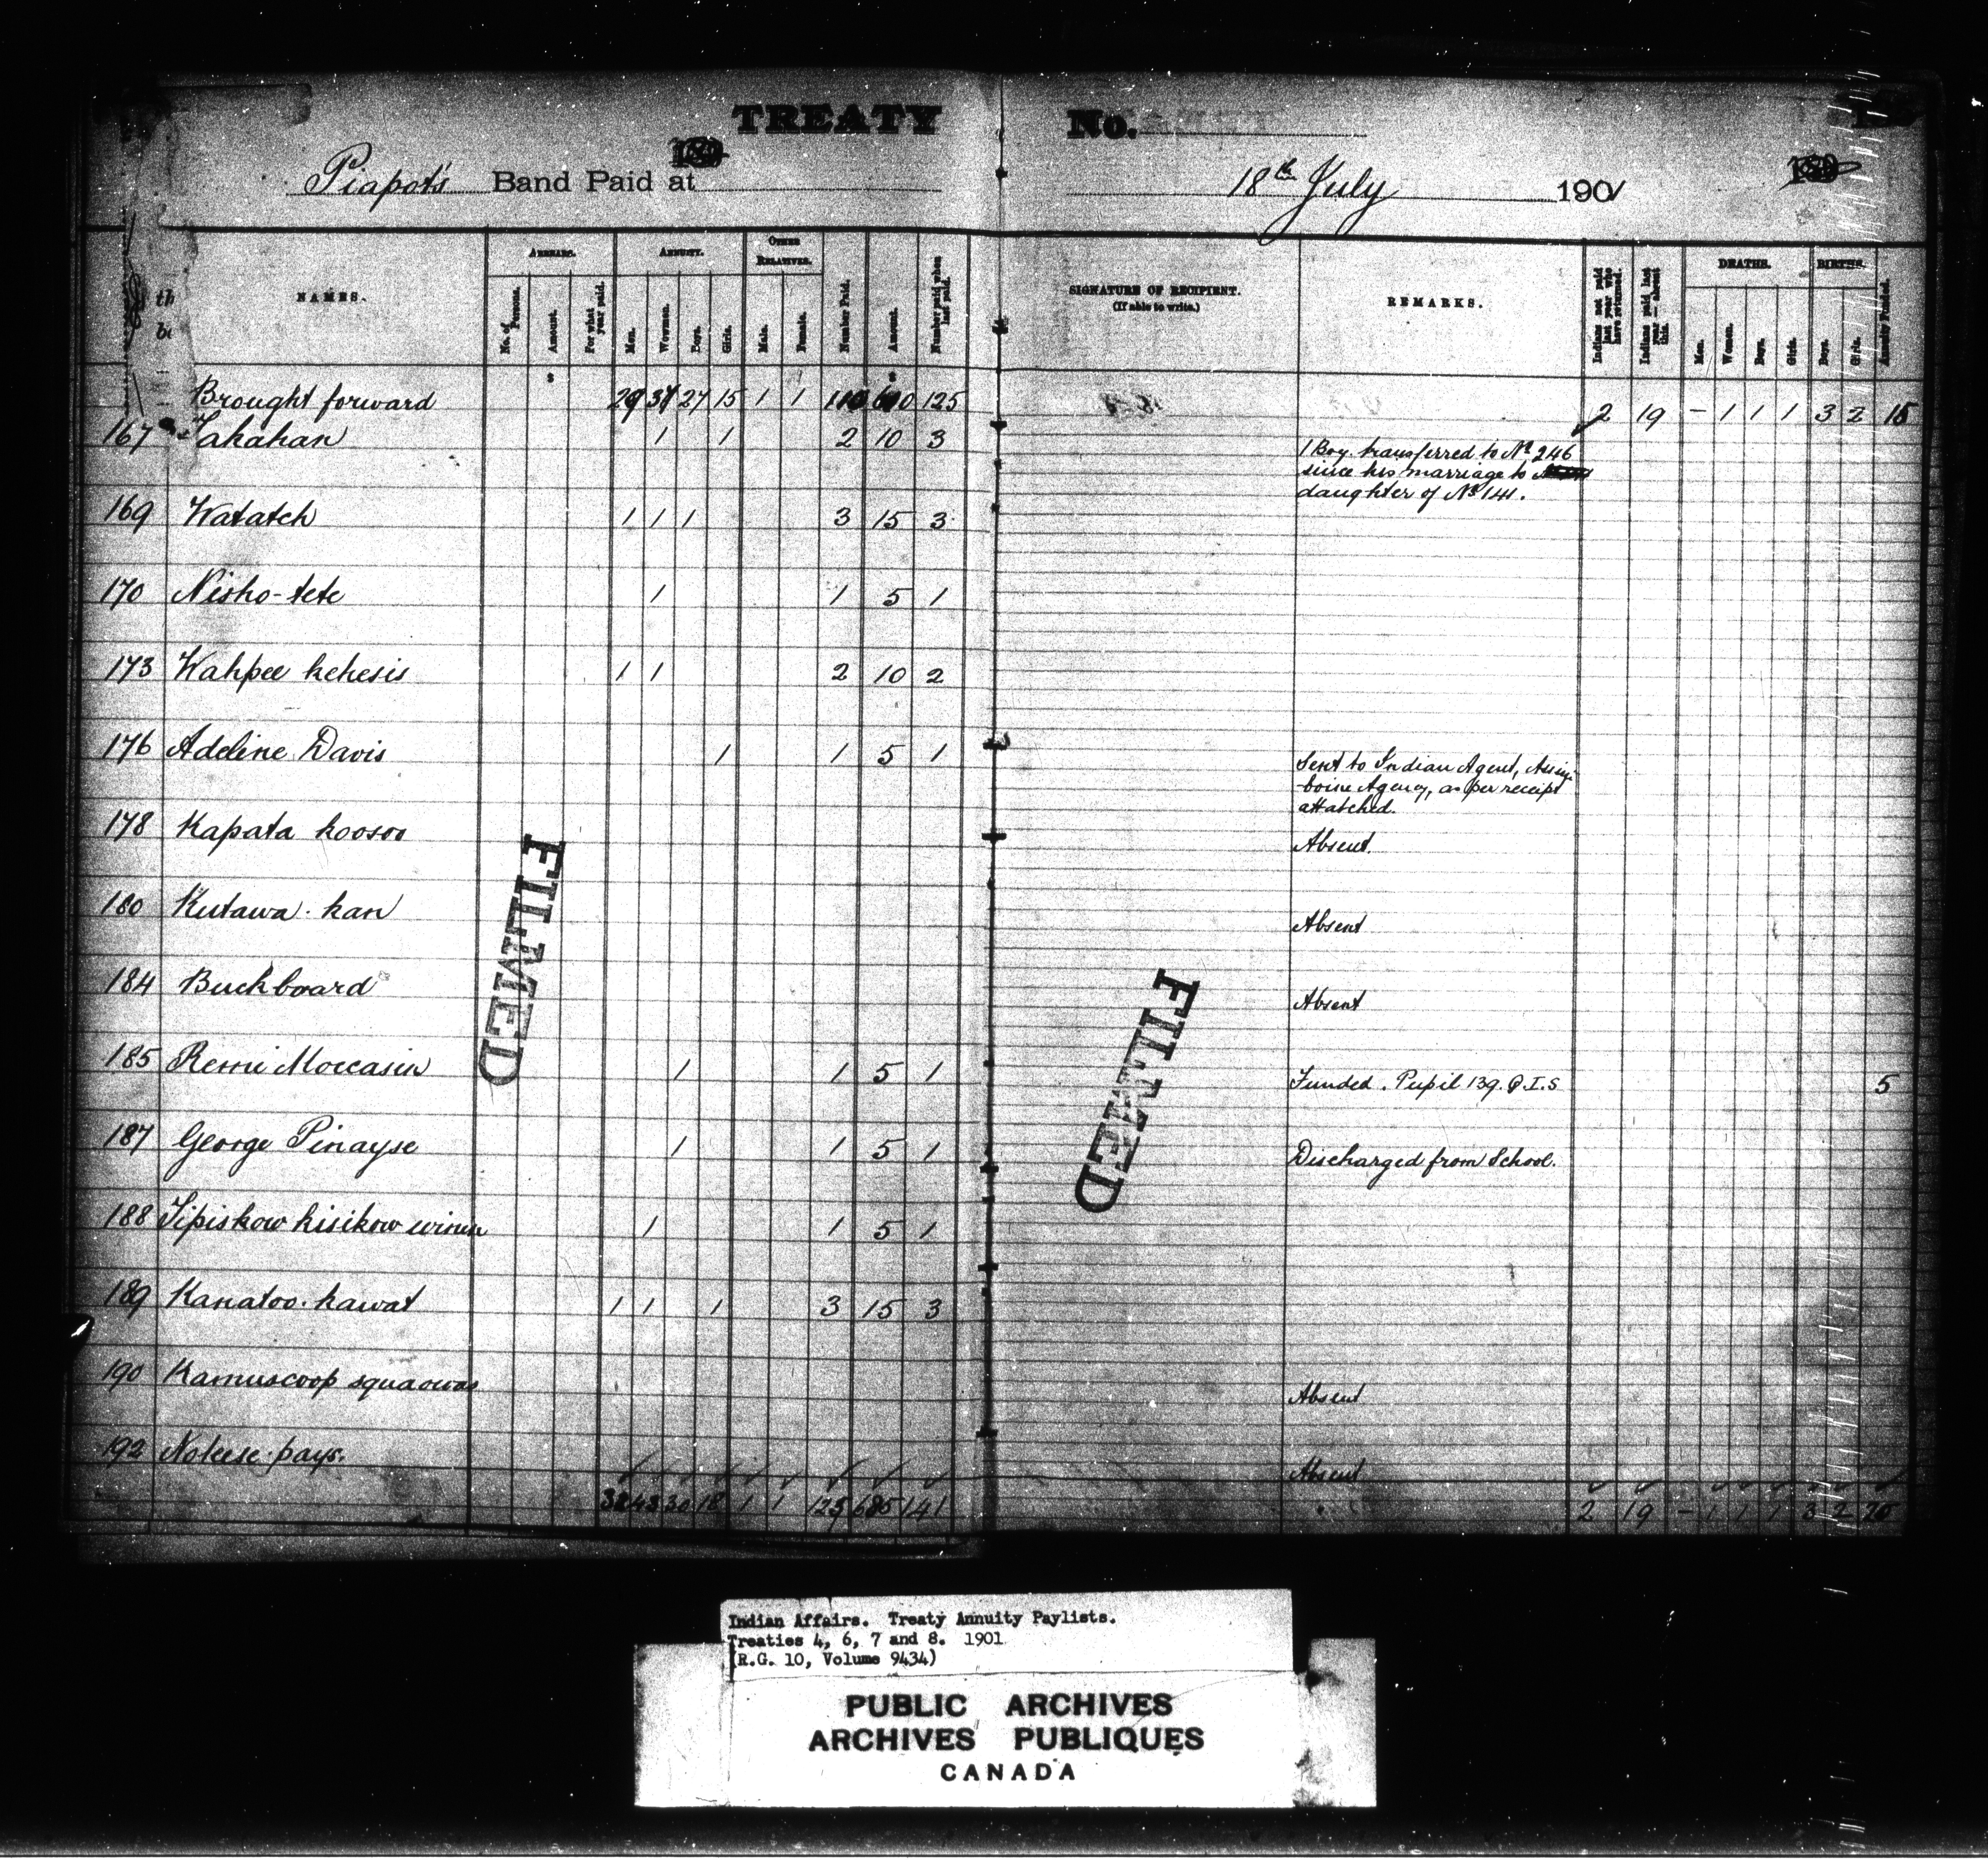 TREATY No.
Piapot's Band Paid at
18th July 1901
NAMES.
ARREARS.
No. of Persons.
Amount.
For what year paid.
ANNUITY.
Men.
Women.
Boys.
Girls.
OTHER RELATIVES.
Male.
Female.
Number Paid.
Amount.
Number paid when last paid.
SIGNATURE OF RECIPIENT.
(If able to write.)
REMARKS.
Indians not paid last year who have returned.
Indians paid last year—absent this.
DEATHS.
Men.
Women.
Boys.
Girls.
BIRTHS.
Boys.
Girls.
Annuity Funded.
$ $
Brought forward 27 15 1 1 110 125 2 19 - 1 1 1 3 2 15
167 Tahahan 1 1 2 10 3 1 Boy transferred to No 246
since his marriage to
daughter of No 141.
169 Watatch 1 1 1 3 15 3
170 Nisho-tete 1 1 5 1
173 Wahpee kehesis 1 1 2 10 2
176 Adeline Davis 1 1 5 1 Sent to Indian Agent, Assini
-boine Agency, as per receipt
attatched.
178 Kapata koosoo Absent.
180 Kutawa-kan Absent
184 Buckboard Absent
185 Remi Moccasin 1 1 5 1 Funded. Pupil 139. Q.I.S. 5
187 George Pinayse 1 1 5 1 Discharged from School.
188 Tipiskow kisikow winin 1 1 5 1
189 Kanatoo-kawat 1 1 1 3 15 3
190 Kamuscoop squaowas Absent
192 Nokese-pays. Absent
32 43 30 18 1 1 125 685 141 2 19 - 1 1 1 3 2 20
FILMED
FILMED
Indian Affairs. Treaty Annuity Paylists.
Treaties 4, 6, 7 and 8. 1901
(R.G. 10, Volume 9434)
PUBLIC ARCHIVES
ARCHIVES PUBLIQUES
CANADA